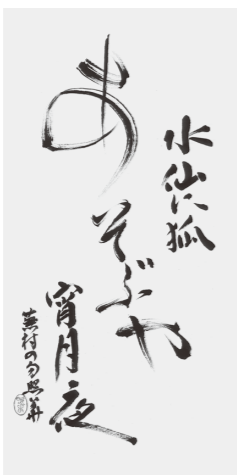 水仙に狐
あそぶや
宵月夜
蕪村の句